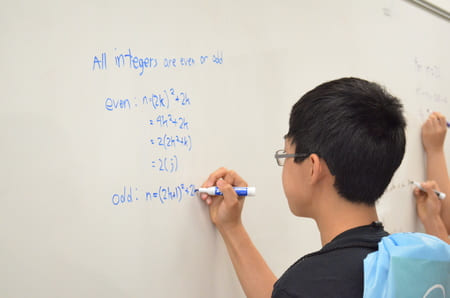 All integers are even or odd
even: n=(2k)²+2k
=4k²+2k
=2(2k²+k)
=2(j)
odd: n=(2k+1)²+2